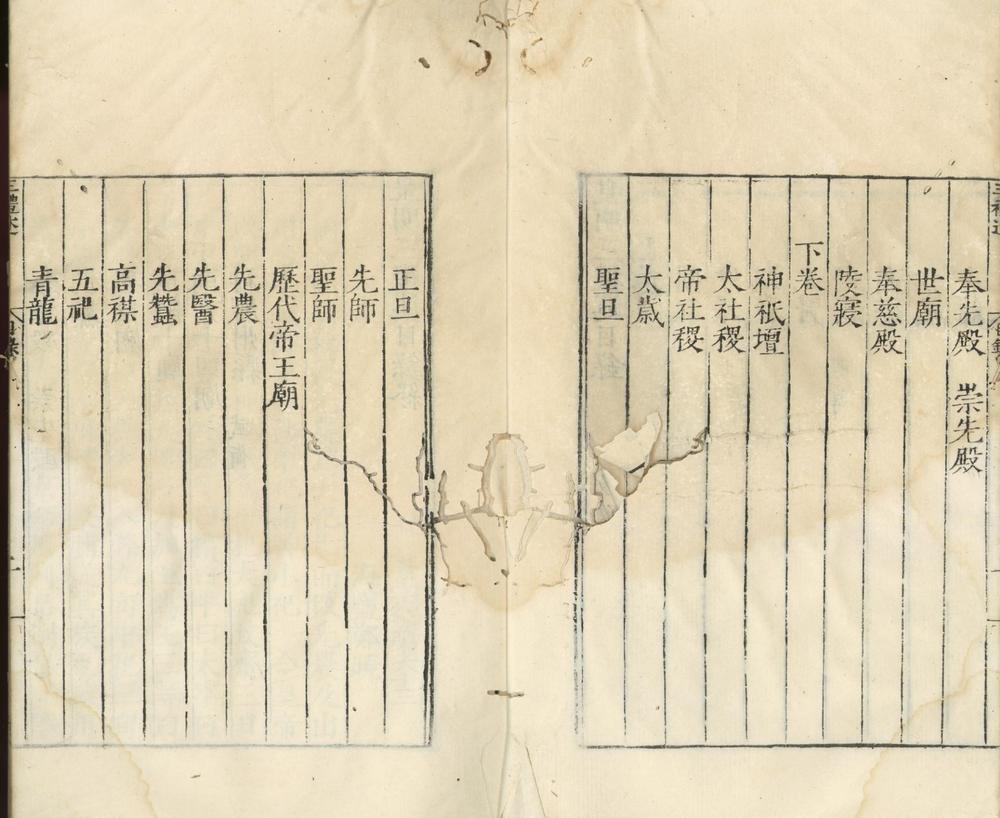 奉先殿 崇先殿
世廟
奉慈殿
陵寢
下卷
神祇壇
太社稷
帝社稷
太歲
聖旦
正旦
先師
聖師
歷代帝王廟
先農
先醫
先蠶
高禖
五祀
青龍